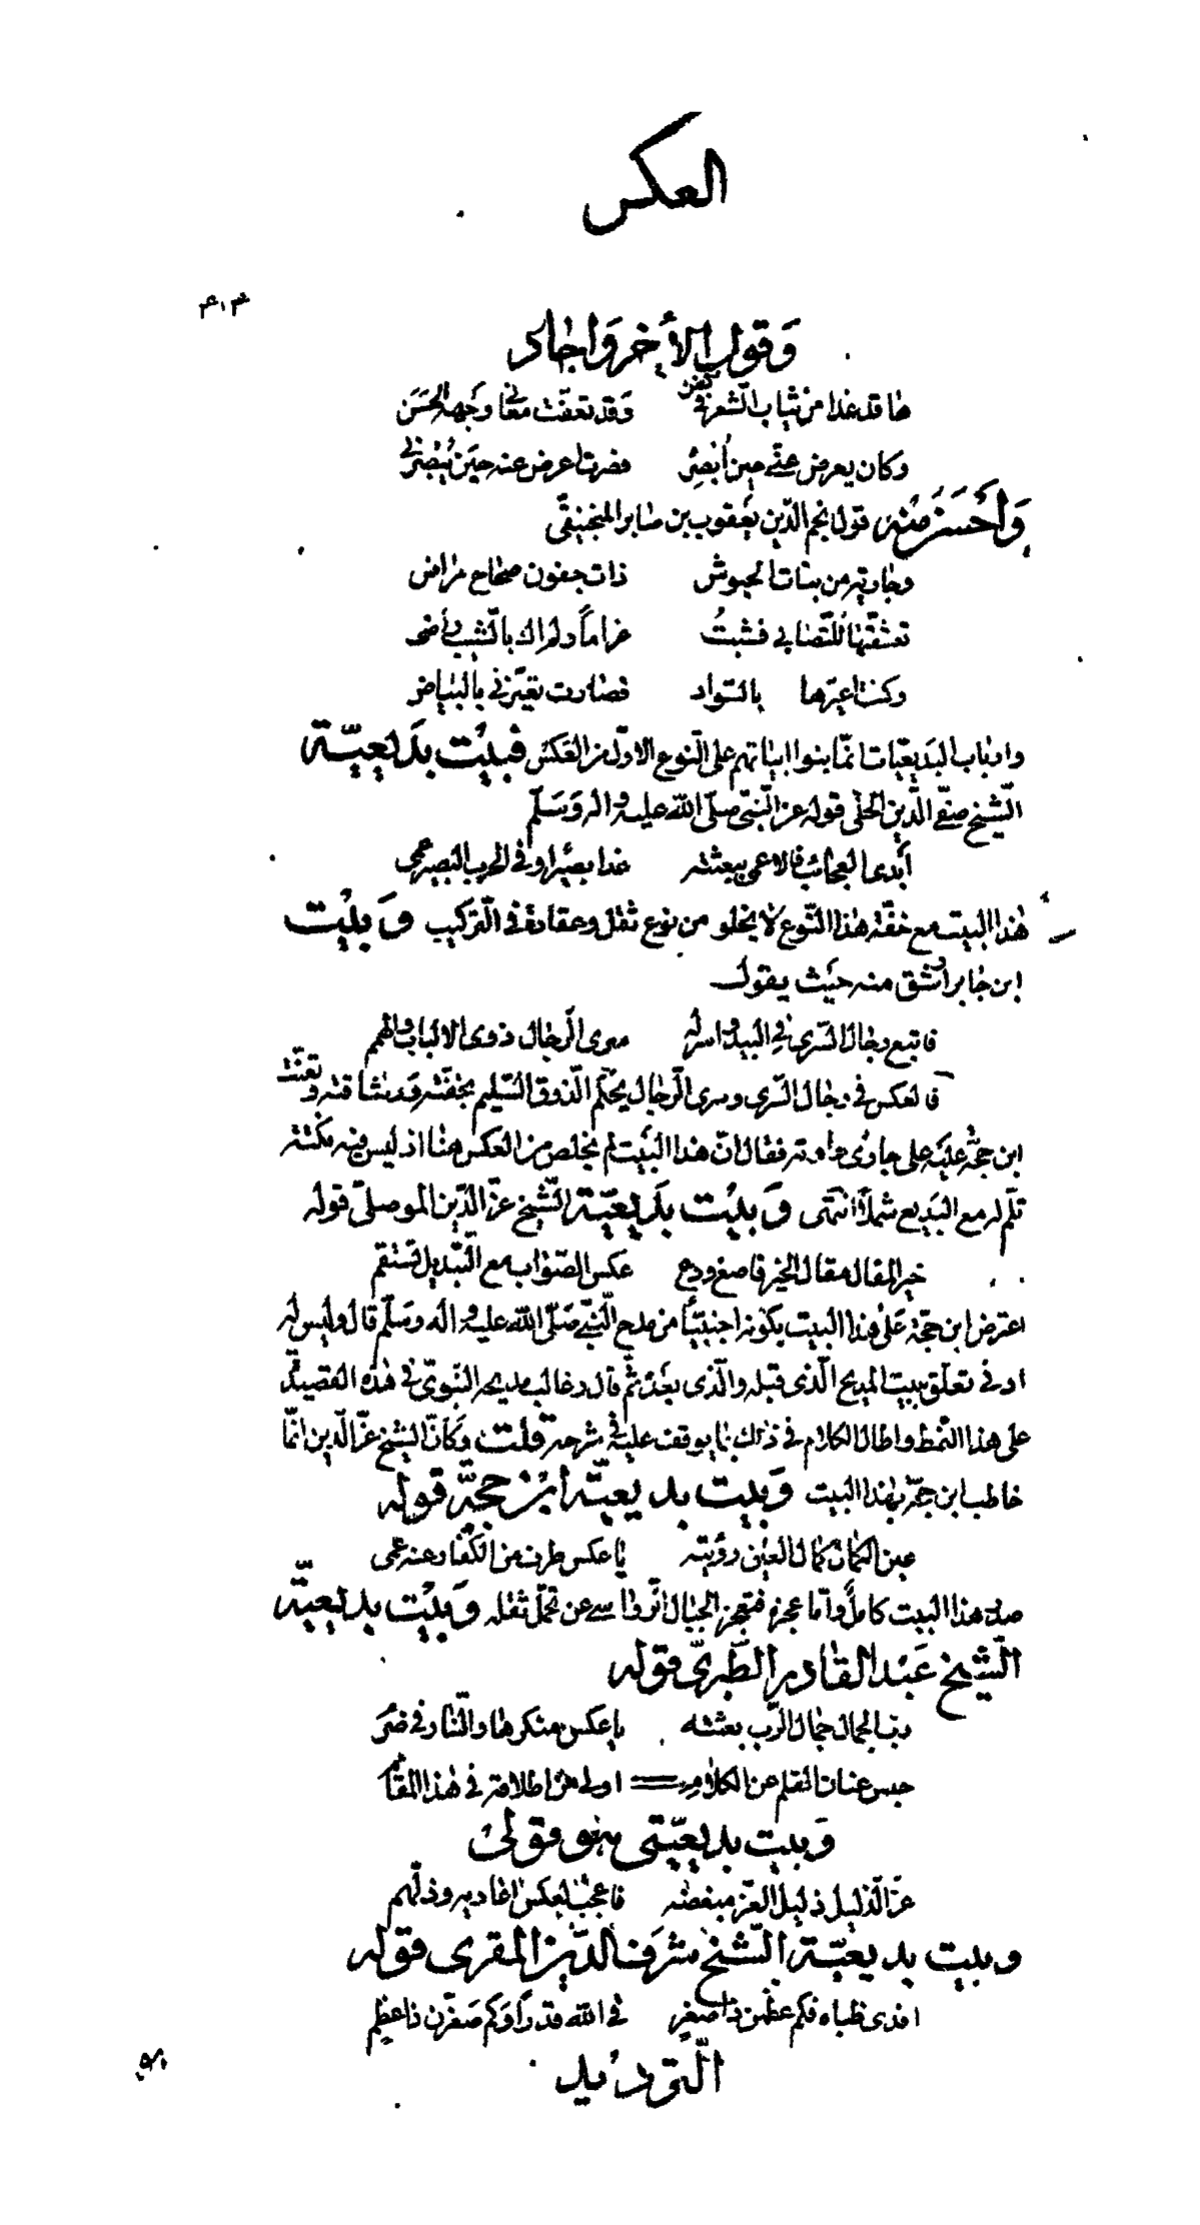 العكس
٤١٣
وَقول الأخر وَاجاد
ها قد غدا من ثياب الشعر في كفن وَقد تعفّت معانی وَجهه الحَسَن
وكان يعرض عنّى حين اُبصِر فصرت اعرض عنه حين يُبْصرُنى
وَاَحسَن مِنه قول نجم الدّين يَعقوب بن صابر المنجنيقى
وجارية من بنات الحبوش ذات جفون صحاح مراض
تعشّقتها للتّصابى فشبتُ غراماً ولم اك بالشّيب راضى
وكنت اعيّرها بالسّواد فصارت تعيّرنى بالبياض
وارباب البَديعيّات انّما بنوا ابياتهم على النّوع الاوّل من العَكس فبيْت بدَيعيّة
الشّيخ صفىّ الدّين الحلّى قوله عن النّبىّ صلّى اللّه عليه واله وَسَلّم
أبدى العجائب فالاعمى ببعثته غدا بصيرا وفى الحرب البصير عمى
هٰذا البيت مع خفّة هٰذا النّوع لا يخلو من نوع ثقل وعقادة فى التّركيب وَ بيْت
ابن جابر ارشق منه حيْث يقول
فاتبع رجال السّرى فى البيد واسر له سرى الرّجال ذوى الالباب والهمم
فالعكس فى رجال السّرى وسرى الرّجال يحكم الذّوق السّليم بخفّته وَرشاقته وتعنّت
ابن حجّة عليه على جارى عادته فقال انّ هذا البَيت لم يخلص من العكس هنا اذ ليس فيه نكتة
تلم له مع البَديع شملاً انتهى وَ بيْت بدَيعيّة الشّيخ عزّ الدّين الموصلىّ قوله
خير المقال مقال الخير فاصغ ودع عكس الصّواب مع التّبديل تستقم
اعترض ابن حجّة عَلى هٰذا البيت بكونه اجنبيّاً من مدح النّبىّ صَلّى اللّه عليه واله وسَلّم قال وليس له
ادنى تعلّق ببيت المديح الّذى قبله والّذى بعَده ثمّ قال وغالب مديحه النّبوىّ فى هذه القصيدة
على هذا النّمط واطال الكلام فى ذٰلك بما يوقف عليه فى شرحه قلت وَكأنّ الشيخ عزّ الدّين انّما
خاطب ابن حجّة بهٰذا البيت وَبيت بديعيّة ابن حجّة قوله
عين الكمال كمال العين رؤيته يا عكس طرف من الكفّار عنه عمى
صدر هذا البيت كاملٌ وامّا عجزه فتعجز الجبال الرّواسى عن تحمّل ثقله وَبيْت بديعيّة
الشّيخ عَبْد القادر الطّبرىّ قوله
ربّ الجمال جمال الرّب بعثته يا عكس منكرها والنّار فى ضَرَم
حبس عنان القلم عن الكلام اولى من اطلاقه فى هٰذا المقام
وَبيت بديعيّتى هو قولى
عزّ الذّليل ذليل العزّ مبغضه فاعجب لعكس اعاديه وذلّهم
وبيت بديعيّة الشّيخ شرف الدّين المقرى قوله
افدى ظباه فكم عظّمن ذا صغر فى اللّه قدراً وَكم صَغّرن ذا عظم
التّرديد